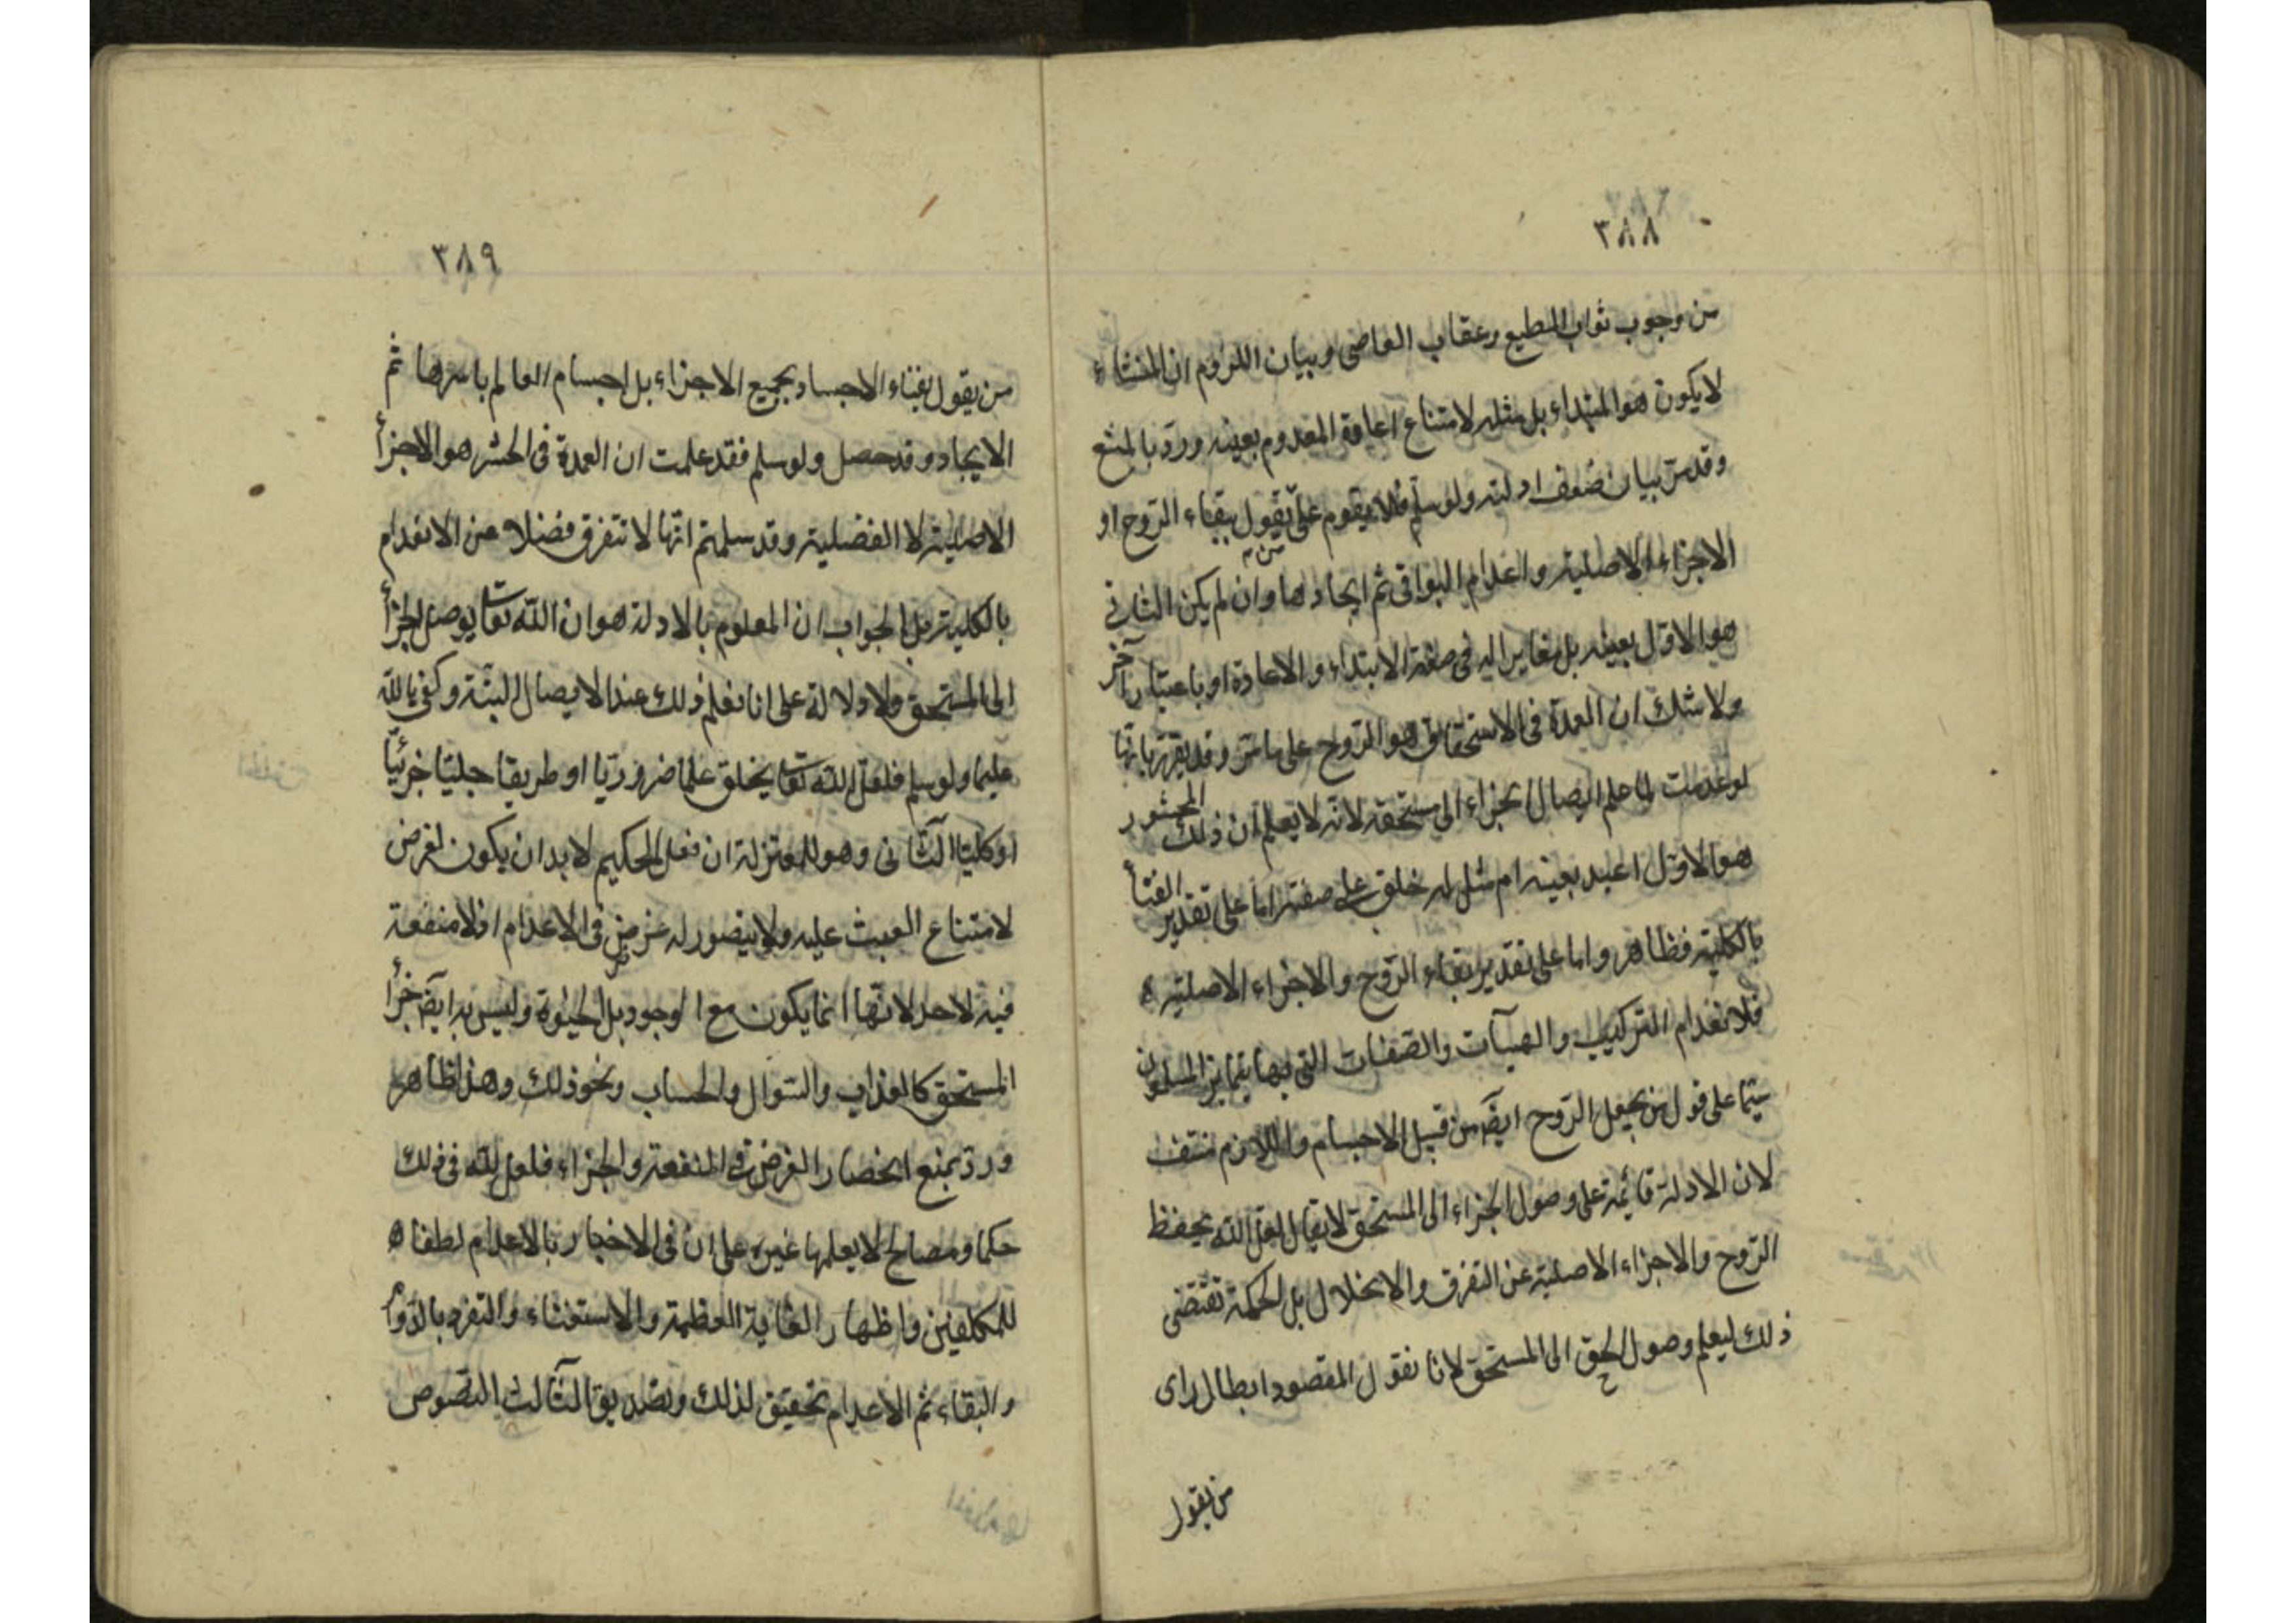 ٣٨٨
من وجوب ثواب المطيع وعقاب العاصى وبيان اللزوم ان المنشاء
لا يكون هو المبتداء بل مثله لامتناع اعادة المعدوم بعينه ورد بالمنع
وقد مر بيان ضعف ادلته ولو سلم فلا يقوم على من يقول ببقاء الروح او
الاجزاء الاصلية واعدام البواقى ثم ايجادها وان لم يكن الثانى
هو الاول بعينه بل مغاير اله فى صفة الابتداء والاعادة او باعتبار آخر
ولا شك ان العمدة فى الاستحقاق هو الروح على ما مر وقد يقرر بانها
لو عدمت لما علم ايصال الجزاء الى مستحقه لانه لا يعلم ان ذلك المحشور
هو الاول اعيد بعينه ام مثل له خلق على صفته اما على تقدير الفنأ
بالكلية فظاهر واما على تقدير بقاء الروح والاجزاء الاصلية
فلانعدام التركيب والهيآت والصفات التى بها يتمايز المسلمون
سيما على قول من يجعل الروح ايضا من قبيل الاجسام واللازم منتف
لان الادلة قائمة على وصول الجزاء الى المستحق لا يقال لعل الله يحفظ
الروح والاجزاء الاصلية عن التفرق والانحلال بل الحكمة تقتضى
ذلك ليعلم وصول الحق الى المستحق لانا نقول المقصود ابطال راى
من يقول
٣٨٩
من يقول بفناء الاجساد بجميع الاجزاء بل اجسام العالم باسرها ثم
الايجاد وقد حصل ولو سلم فقد علمت ان العمدة فى الحشر هو الاجزأ
الاصلية لا الفضلية وقد سلمتم انها لا تتفرق فضلا عن الانعدام
بالكلية بل الجواب ان المعلوم بالادلة هو ان الله تعا يوصل الجزأ
الى المستحق ولا دلالة على انا نعلم ذلك عند الايصال البتة وكفى بالله
عليما ولو سلم فلعل الله تعا يخلق علما ضروريا او طريقا جليا جزئيا
او كليا الثانى وهو للمعتزلة ان فعل الحكيم لا بد ان يكون لغرض
لامتناع العبث عليه ولا يتصور له غرض فى الاعدام اذ لا منفعة
فيه لاحد لانها انما يكون مع الوجود بل الحيوة وليس به ايضا جزأ
المستحق كالعذاب والسوال والحساب ونحو ذلك وهذا ظاهر
ورد بمنع انحصار الغرض فى المنفعة والجزاء فلعل لله فى ذلك
حكما ومصالح لا يعلمها غيره على ان فى الاخبار بالاعدام لطفا
للمكلفين واظهار الغاية العظمة والاستغناء والتفرد بالدوام
والبقاء ثم الاعدام تحقيق لذلك وتصديق الثالث النصوص